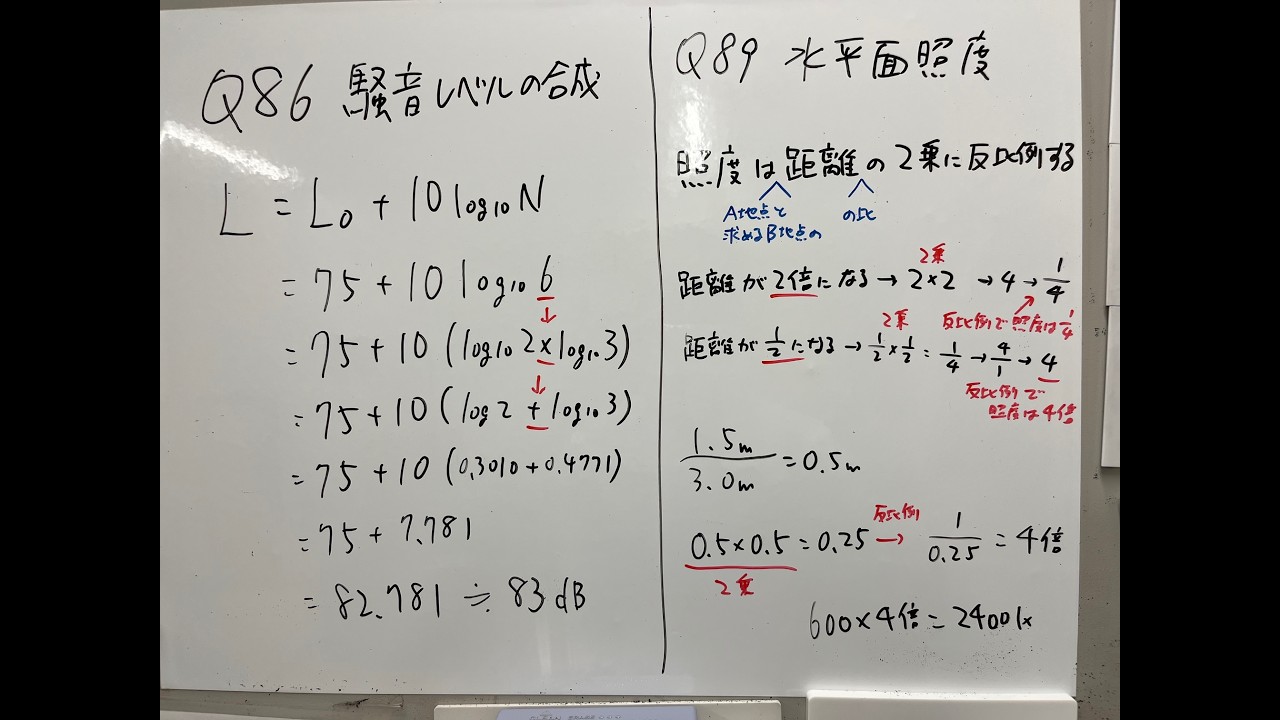 Q86 騒音レベルの合成
L = L₀ + 10 log₁₀ N
= 75 + 10 log₁₀ 6
↓
= 75 + 10 (log₁₀ 2 × log₁₀ 3)
↓
= 75 + 10 (log 2 + log₁₀ 3)
= 75 + 10 (0.3010 + 0.4771)
= 75 + 7.781
= 82.781 ≒ 83 dB
Q89 水平面照度
照度は距離の2乗に反比例する
A地点と
求めるB地点の
の比
2乗
距離が2倍になる → 2×2 → 4 → 1/4
反比例で照度は1/4
2乗
距離が1/2になる → 1/2 × 1/2 = 1/4 → 4/1 → 4
反比例で
照度は4倍
1.5m/3.0m = 0.5m
反比例
0.5×0.5 = 0.25 → 1/0.25 = 4倍
2乗
600×4倍 = 2400lx